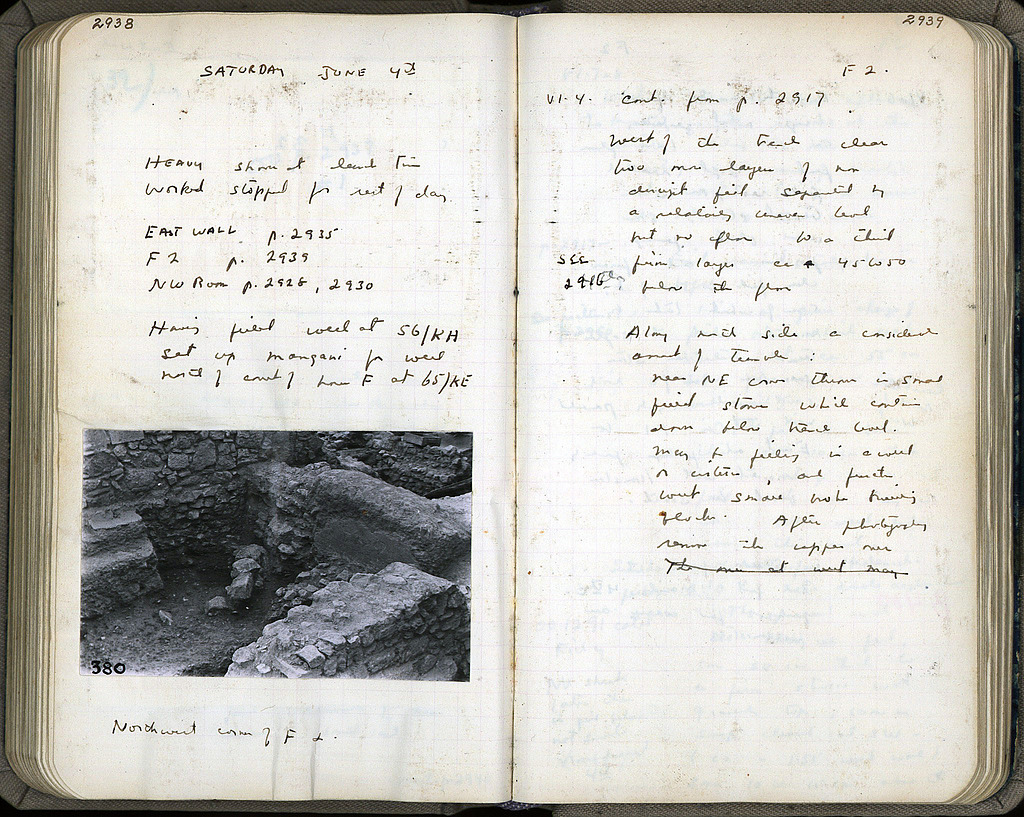 2938
SATURDAY JUNE 4th
HEAVY shower at lunch time
Worked stopped for rest of day.
EAST WALL p. 2935
F 2 p. 2939
NW Room p. 2928, 2930
Having filled well at 56/KH
set up mangani for well
north of court of house F at 65/KE
380
Northwest corner of F 2.
2939
F 2.
VI-4. cont. from p. 2917
West of the trench clear
two more layers of
fill separated by
a relatively uneven level
but so often to a third
SSS layer 45 to 50
2916 below the floor
Along north side a considerable
amount of tumble:
near NE corner there is small
field stone which contin
down below trench level.
May be filling in a well
or cistern, and further
west small
blocks. After photography
remove the upper ones
The one at west may